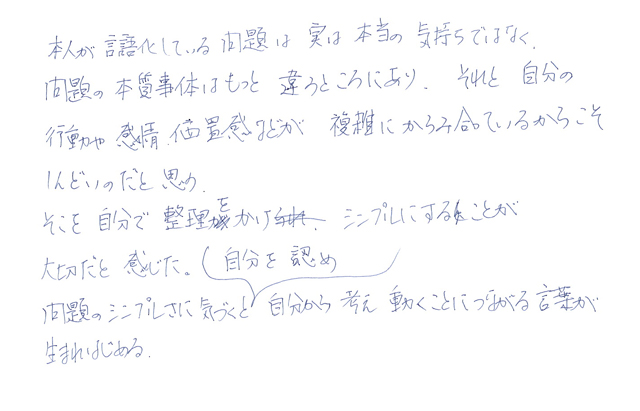 本人が言語化している問題は実は本当の気持ちではなく、
問題の本質事体はもっと違うところにあり、それと自分の
行動や感情、位置感などが複雑にからみ合っているからこそ
しんどいのだと思う。
そこを自分で整理を かけ シンプルにすることが
大切だと感じた。(自分を認め
問題のシンプルさに気づくと自分から考え動くことにつながる言葉が
生まれはじめる。